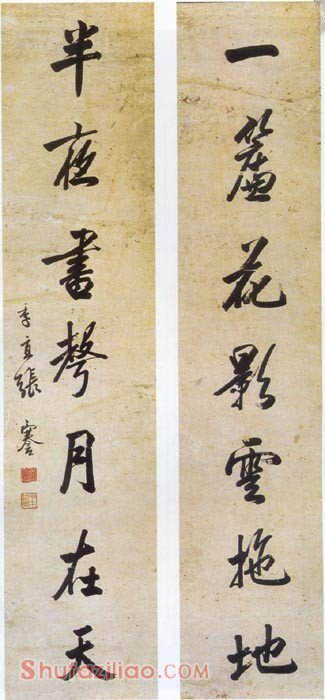 一簾花影雲拖地
半夜書聲月在天
季直張謇
Shufaziliao.com